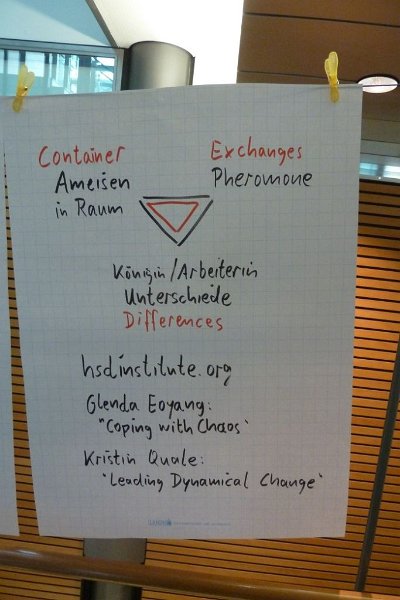 Container
Exchanges
Ameisen
in Raum
Pheromone
Königin/Arbeiterin
Unterschiede
Differences
hsdinstitute.org
Glenda Eoyang:
"Coping with Chaos"
Kristin Quale:
"Leading Dynamical Change"